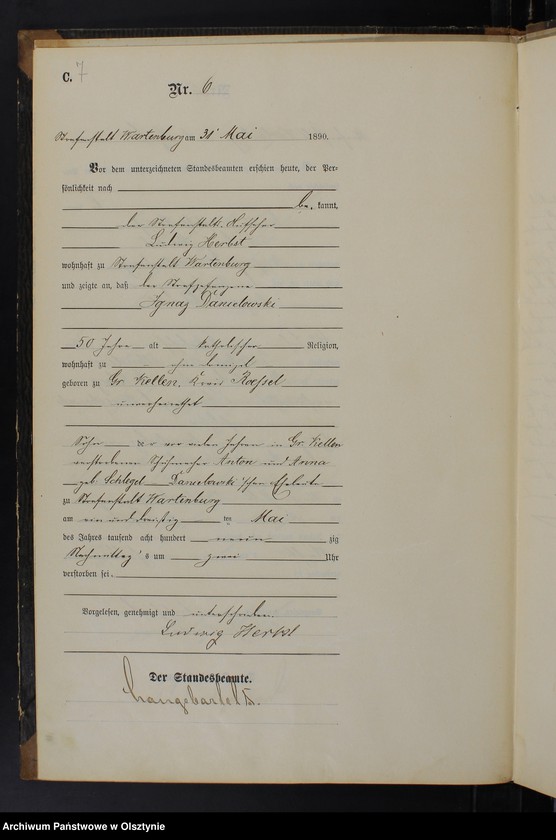 C. 7
Nr. 6
Strafanstalt Wartenburg am 31 Mai 1890.
Vor dem unterzeichneten Standesbeamten erschien heute, der Per-
sönlichkeit nach
be kannt,
der Strafanstalts-Aufseher
Ludwig Herbst
wohnhaft zu Strafanstalt Wartenburg
und zeigte an, daß der Strafgefangene
Ignaz Danielowski
50 Jahre alt katholischer Religion,
wohnhaft zu ohne Domizil
geboren zu Gr. Kellen, Kreis Roessel
unverheirathet
Sohn der vor vielen Jahren in Gr. Kellen
verstorbenen Schuhmacher Anton und Anna
geb. Schlegel Danielowski'schen Eheleute
zu Strafanstalt Wartenburg
am ein und dreißig ten Mai
des Jahres tausend acht hundert neun zig
Nachmittag's um zwei Uhr
verstorben sei.
Vorgelesen, genehmigt und unterschrieben
Ludwig Herbst
Der Standesbeamte.
Archiwum Państwowe w Olsztynie